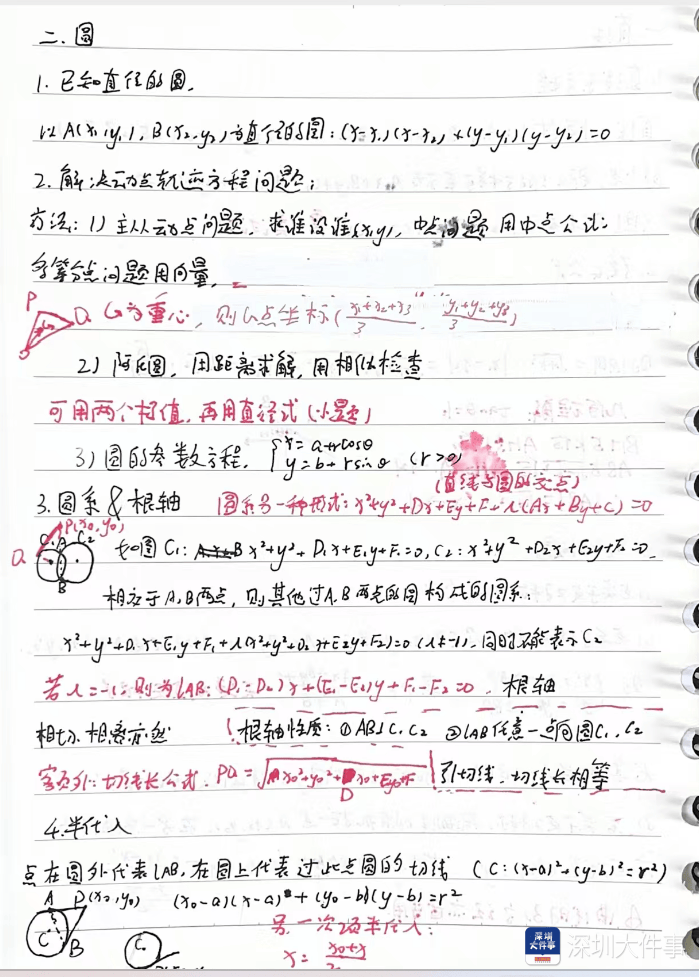 二.圆
1.已知直径的圆.
以A(x₁,y₁),B(x₂,y₂)为直径的圆:(x-x₁)(x-x₂)+(y-y₁)(y-y₂)=0
2.解决动点轨迹方程问题;
方法:1)主从动点问题,求谁设谁(x,y),中点问题用中点公式;
多等分点问题用向量,
P Q G为重心,则G点坐标(x₁+x₂+x₃/3, y₁+y₂+y₃/3)
2)阿氏圆,用距离求解,用相似检查
可用两个极值,再用直径式(小题)
3)圆的参数方程.{x=a+rcosθ y=b+rsinθ (r>0)
(直线与圆的交点)
3.圆系&根轴 圆系另一种形式:x²+y²+Dx+Ey+F+λ(Ax+By+C)=0
Q P(x₀,y₀) C₁ A C₂ B
如图C₁:x²+y²+D₁x+E₁y+F₁=0,C₂:x²+y²+D₂x+E₂y+F₂=0
相交于A,B两点,则其他过A,B两点的圆构成的圆系:
x²+y²+D₁x+E₁y+F₁+λ(x²+y²+D₂x+E₂y+F₂)=0(λ≠-1),同时不能表示C₂
若λ=-1:则为lAB:(D₁-D₂)x+(E₁-E₂)y+F₁-F₂=0.根轴
相切.相离亦然 根轴性质:①AB⊥C₁C₂ ②lAB任意一点向圆C₁、C₂
客观外:切线长公式.PQ=√x₀²+y₀²+Dx₀+Ey₀+F 引切线,切线长相等
4.半代入
点在圆外代表lAB,在圆上代表过此点圆的切线 (C:(x-a)²+(y-b)²=r²)
A P(x₀,y₀) C B (x₀-a)(x-a)+(y₀-b)(y-b)=r²
C. 另一次项半代入:
x=x₀+x/2
深圳大件事
深圳大件事